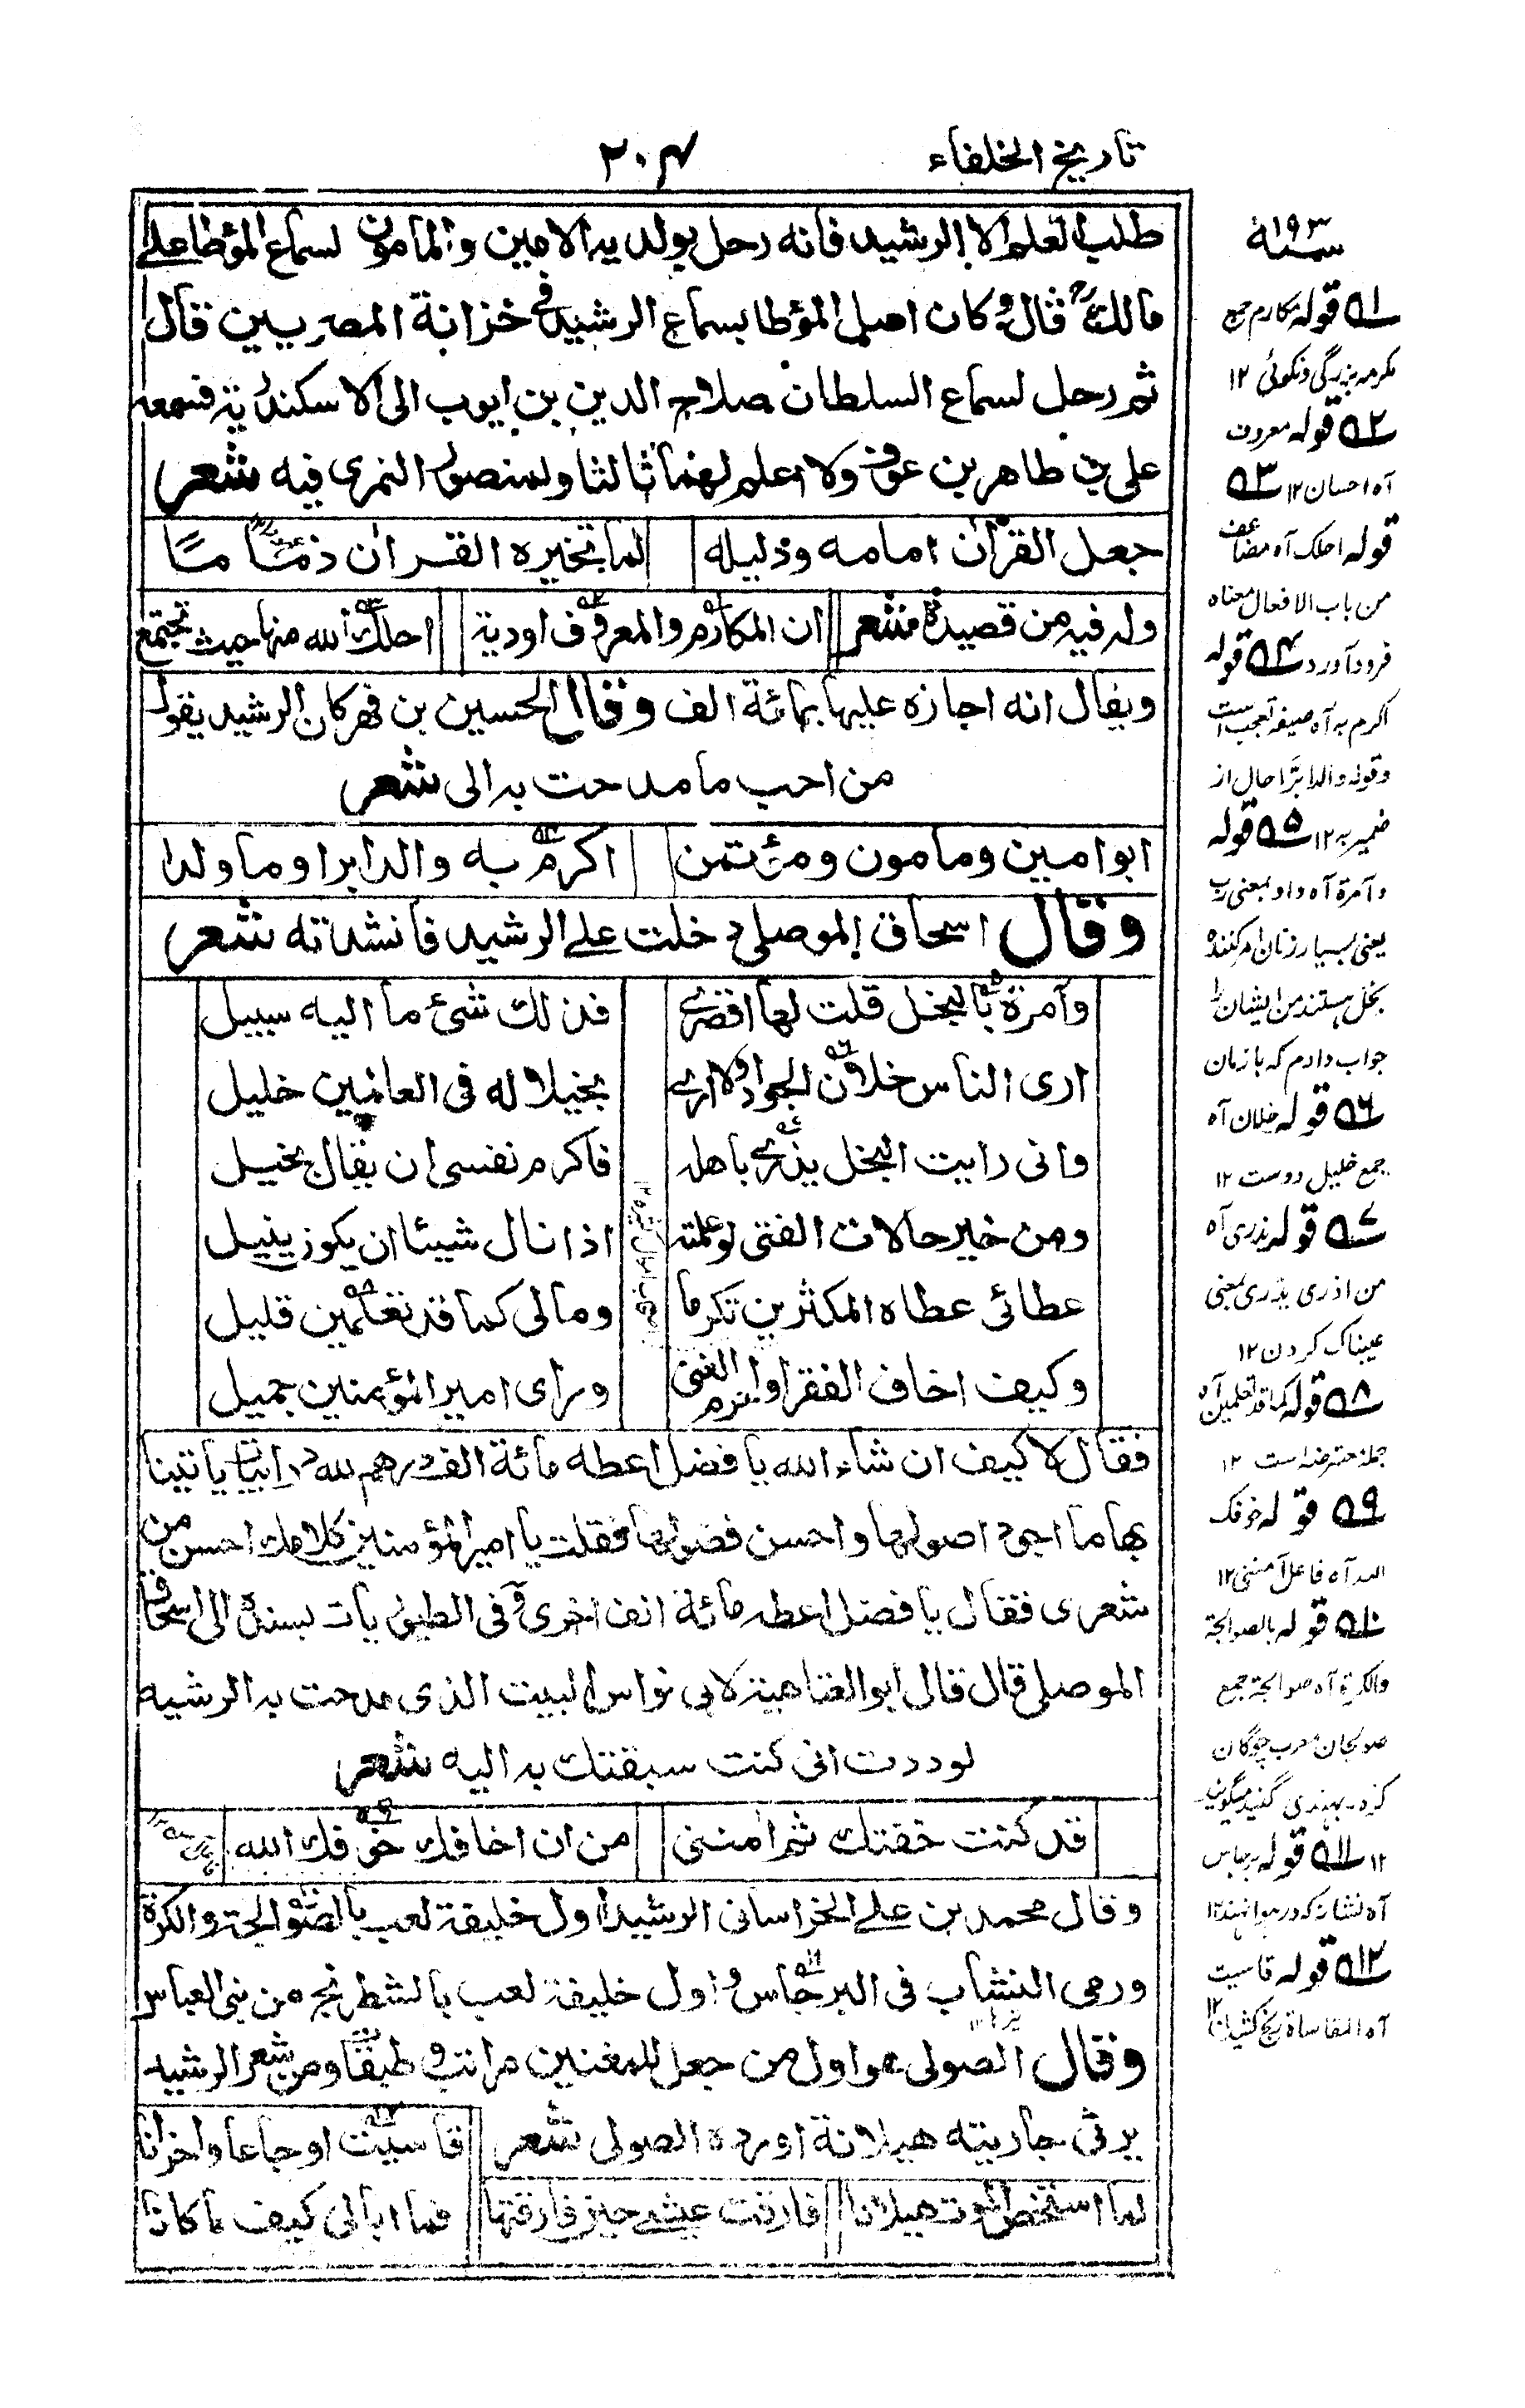 تاريخ الخلفاء
٢٠٤
طلب العلم الا الرشيد فانه رحل بولديه الامين والمامون لسماع المؤطا على
مالك قال وكان اصل المؤطا بسماع الرشيد في خزانة المصريين قال
ثم رحل لسماع السلطان صلاح الدين بن ايوب الى الاسكندرية فسمعه
على بن طاهر بن عوف ولا اعلم لهما ثالثا ولمنصور النمرى فيه شعر
جعل القرآن امامه ودليله لما تخيره القران ذماما
وله فيه من قصيدة شعر ان المكارم والمعروف اودية احلك الله منها حيث تجتمع
ويقال انه اجازه عليها بمائة الف وقال الحسين بن فهر كان الرشيد يقول
من احب ما مدحت به الى شعر
ابو امين ومامون ومؤتمن اكرم به والدا برا وما ولدا
وقال اسحاق الموصلى دخلت على الرشيد فانشدته شعر
وآمرة بالبخل قلت لها اقصرى فذلك شئ ما اليه سبيل
ارى الناس خلان الجواد ولا ارى بخيلا له فى العالمين خليل
وانى رايت البخل يذرى باهله فاكرم نفسى ان يقال بخيل
ومن خير حالات الفتى لو علمته اذا نال شيئا ان يكون ينيل
عطائى عطاء المكثرين تكرما ومالى كما قد تعلمين قليل
وكيف اخاف الفقر او احرم الغنى وراى امير المؤمنين جميل
فقال لا كيف ان شاء الله يا فضل اعطه مائة الف درهم لله در ابيات ياتينا
بها ما اجود اصولها واحسن فصولها فقلت يا امير المؤمنين كلامك احسن من
شعرى فقال يا فضل اعطه مائة الف اخرى وفى الطيوريات بسنده الى اسحاق
الموصلى قال قال ابو العتاهية لابى نواس البيت الذى مدحت به الرشيد
لوددت انى كنت سبقتك به اليه شعر
قد كنت خفتك ثم امننى من ان اخافك خوفك الله
وقال محمد بن على الخراسانى الرشيد اول خليفة لعب بالصوالجة والكرة
ورمى النشاب فى البرجاس واول خليفة لعب بالشطرنج من بنى العباس
وقال الصولى هو اول من جعل للمغنين مراتب وطبقا ومن شعر الرشيد
يرثى جاريته هيلانة اورده الصولى شعر قاسيت اوجاعا واحزانا
لما استخص الموت هيلانا فارقت عيشى حين فارقتها فما ابالى كيف ما كانا
سنة ١٩٣
٥١ قوله مكارم جمع
مكرمه بزرگی ونكوئی ١٢
٥٢ قوله معروف
آه احسان ١٢ ٥٣
قوله احلك آه مضاعف
من باب الافعال معناه
فرود آورد ٥٤ قوله
اكرم به آه صيغه تعجب است
وقوله والدا برّا حال از
ضمير به ١٢ ٥٥ قوله
وآمرة آه واو بمعنى رب
يعنى بسيار زنان امر كننده
بخل هستند من ايشان را
جواب دادم كه باز مان
٥٦ قوله خلان آه
جمع خليل دوست ١٢
٥٧ قوله يذرى آه
من اذرى يذرى بمعنى
عيبناك كردن ١٢
٥٨ قوله كما قد تعلمين آه
جمله معترضه است ١٢
٥٩ قوله خوفك
الله آه فاعل آمننى ١٢
٥١٠ قوله بالصوالجة
والكرة آه صوالجة جمع
صولجان معرب چوگان
كره بهندى گيند ميگويند
١٢ ٥١١ قوله برجاس
آه نشانه كه در هوا نهند ١٢
٥١٢ قوله قاسيت
آه المقاساة رنج كشيدن ١٢